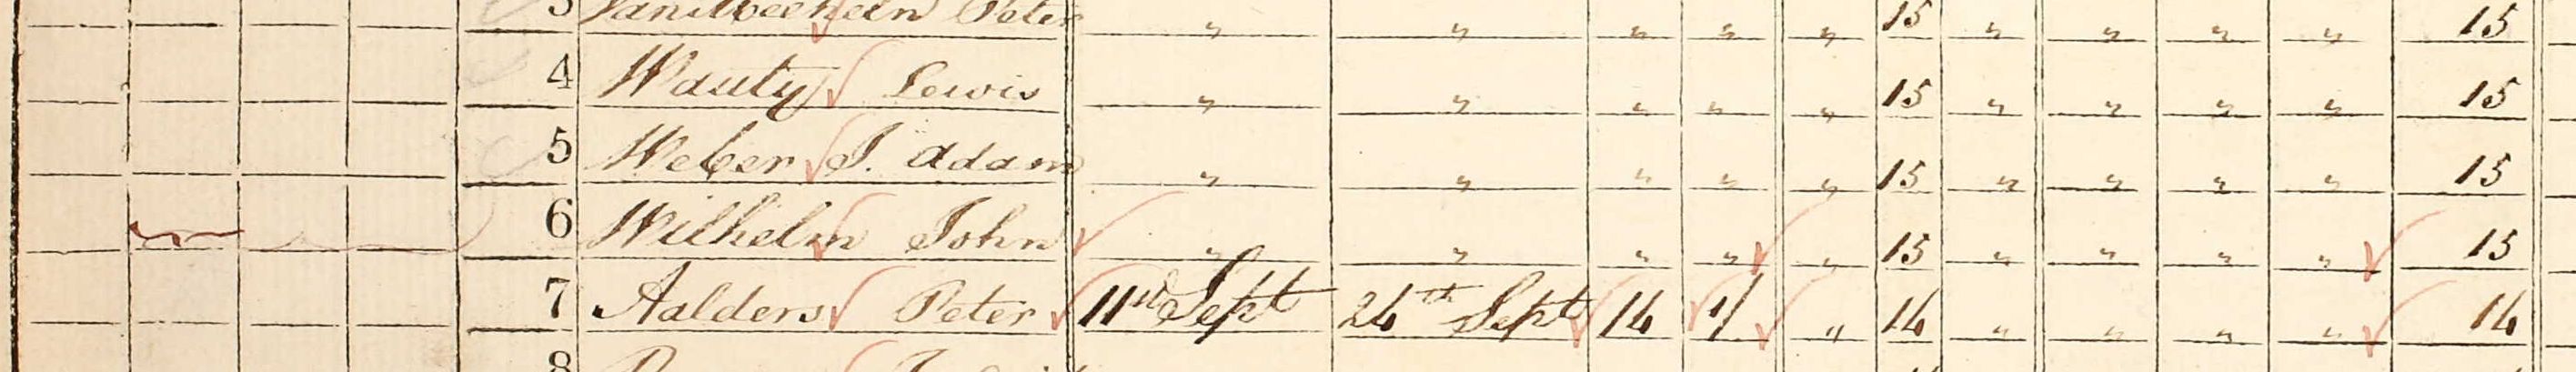 3 Peter " " " " " 15 " " " " 15
4 Wauty Lewis " " " " " 15 " " " " 15
5 Weber J. Adam " " " " " 15 " " " " 15
6 Wilhelm John " " " " " 15 " " " " 15
7 Aalders Peter 11th Sept 24th Sept 14 1/ " 14 " " " " 14
8